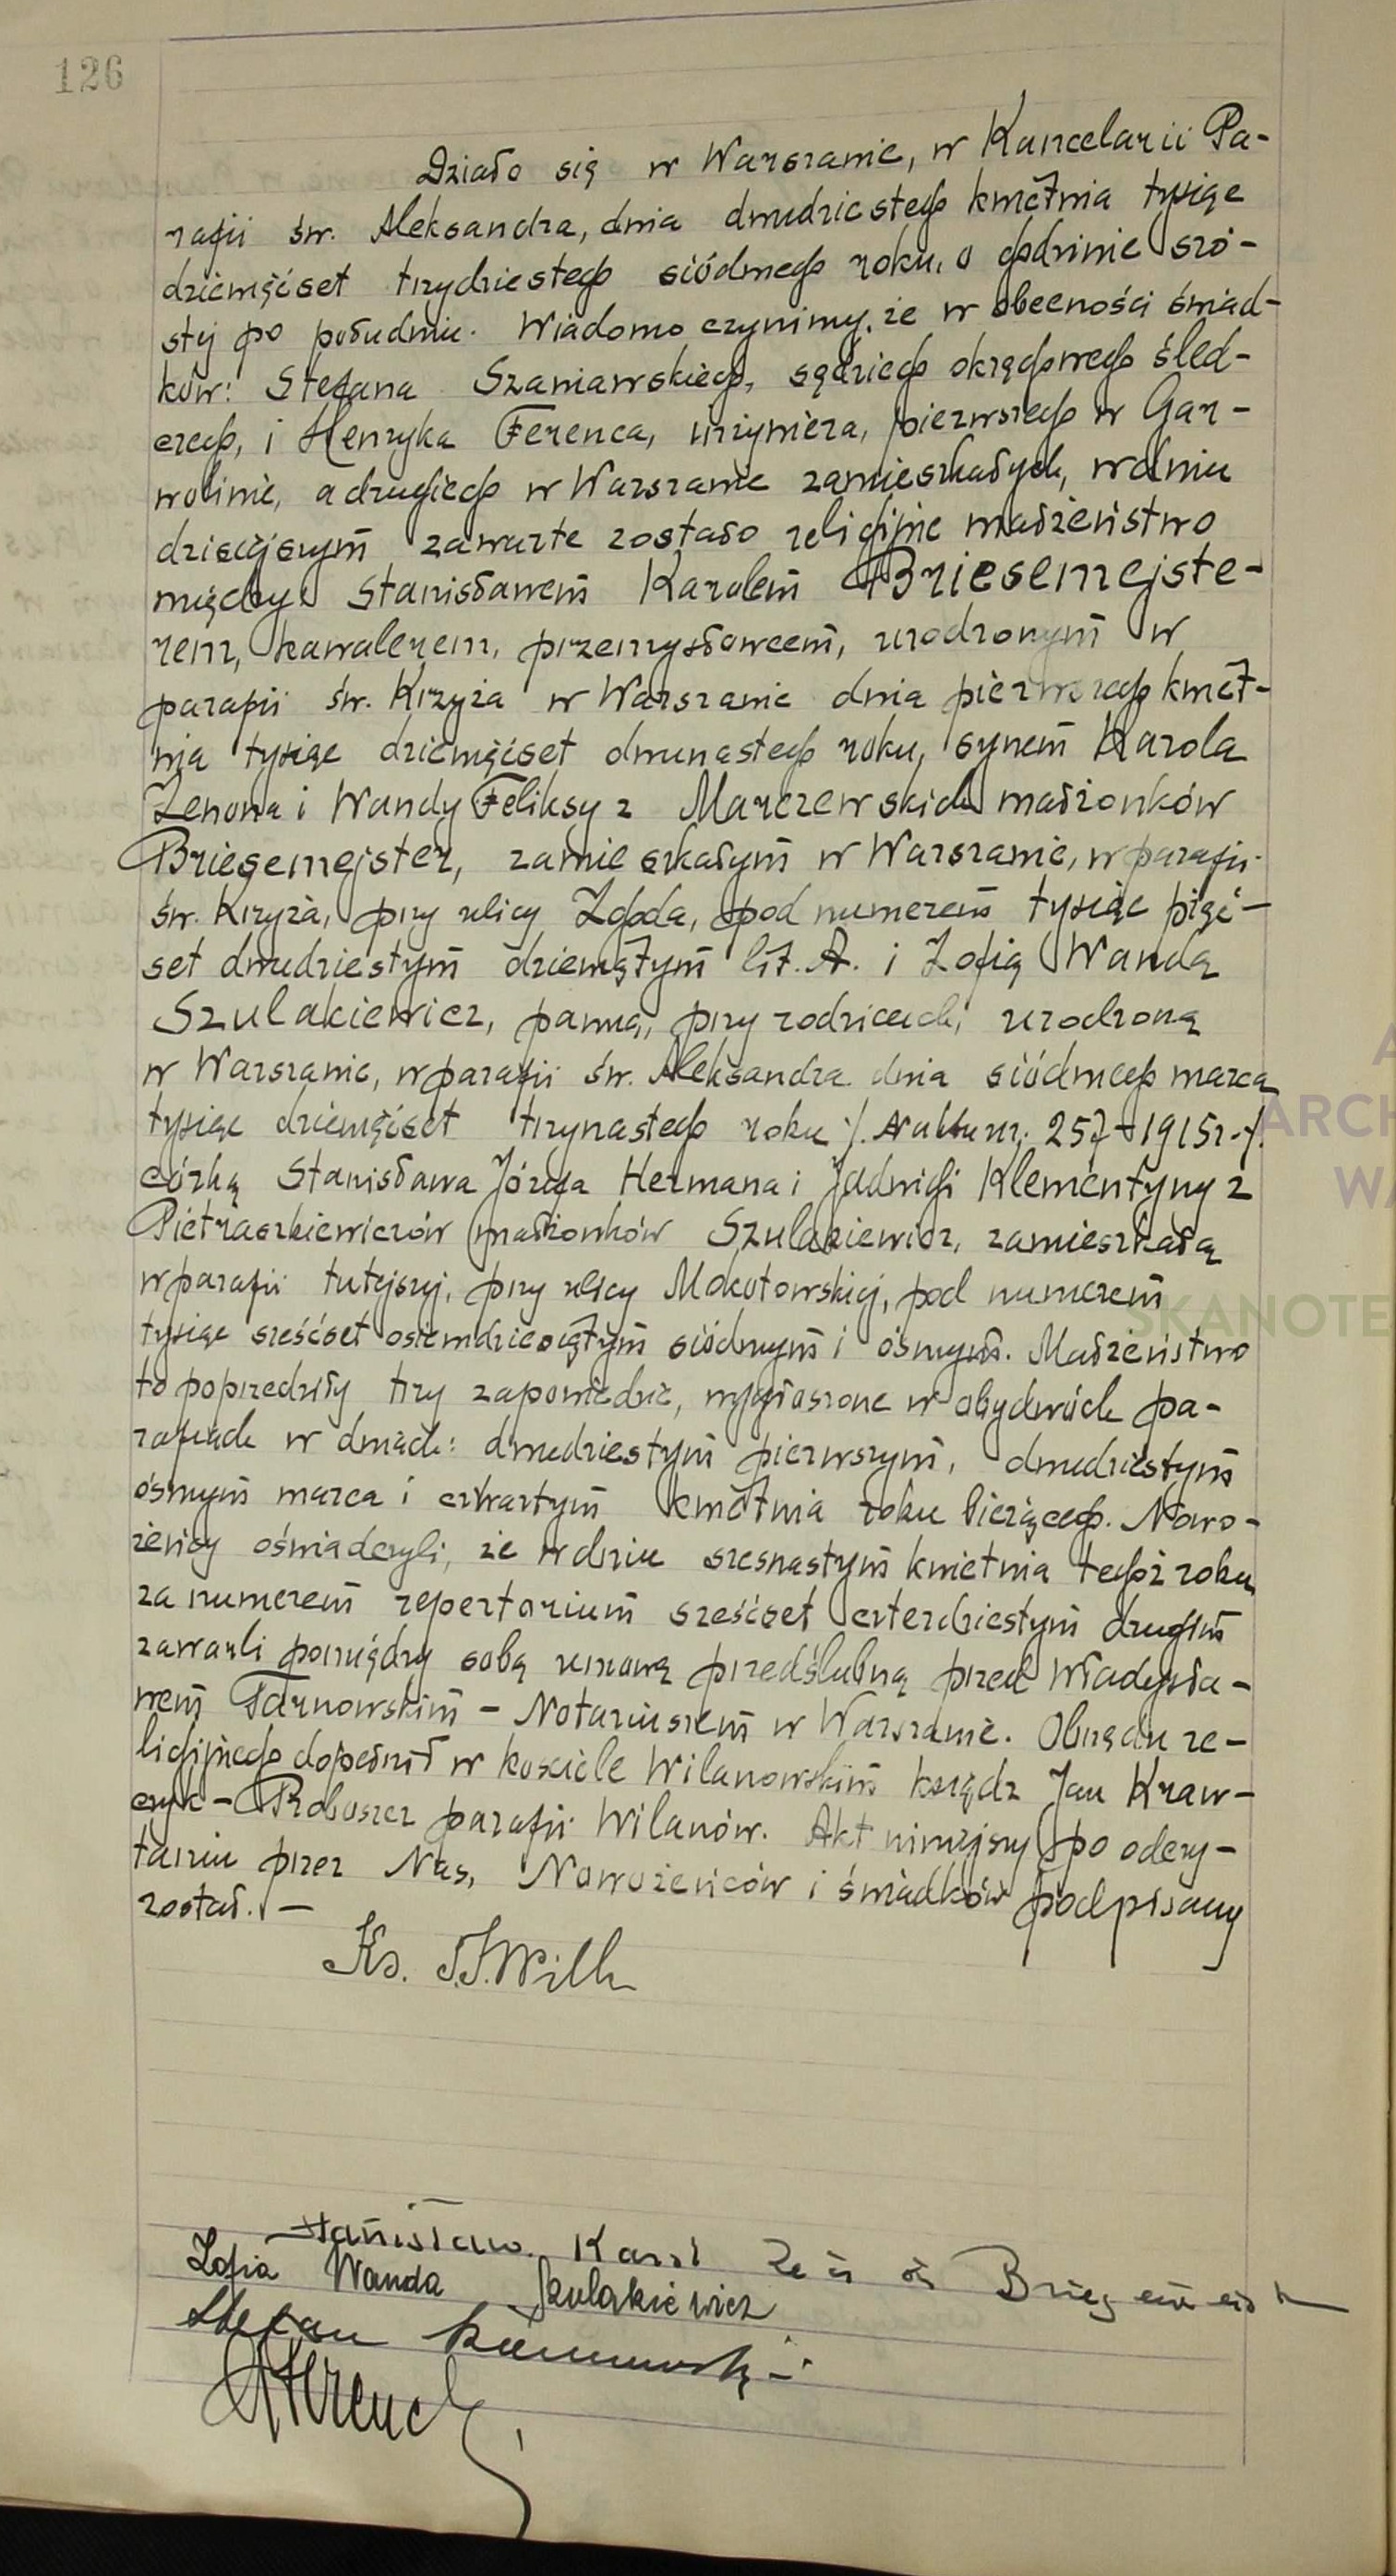 126
Działo się w Warszawie, w Kancelarii Pa-
rafii św. Aleksandra, dnia dwudziestego kwietnia tysiąc
dziewięćset trzydziestego siódmego roku, o godzinie szó-
stej po południu. Wiadomo czynimy, że w obecności świad-
ków: Stefana Szaniawskiego, sędziego okręgowego śled-
czego, i Henryka Ferenca, inżyniera, pierwszego w Gar-
wolinie, a drugiego w Warszawie zamieszkałych, w dniu
dzisiejszym zawarte zostało religijne małżeństwo
między Stanisławem Karolem Briesemejste-
rem, kawalerem, przemysłowcem, urodzonym w
parafii św. Krzyża w Warszawie dnia pierwszego kwiet-
nia tysiąc dziewięćset dwunastego roku, synem Karola
Zenona i Wandy Feliksy z Marczewskich małżonków
Briesemejster, zamieszkałym w Warszawie, w parafii
św. Krzyża, przy ulicy Zgoda, pod numerem tysiąc pięć-
set dwudziestym dziewiątym lit. A. i Zofią Wandą
Szulakiewicz, panną, przy rodzicach, urodzoną
w Warszawie, w parafii św. Aleksandra dnia siódmego marca
tysiąc dziewięćset trzynastego roku /. Nr aktu 257-1915r./.
córką Stanisława Józefa Hermana i Jadwigi Klementyny z
Pietraszkiewiczów małżonków Szulakiewicz, zamieszkałą
w parafii tutejszej, przy ulicy Mokotowskiej, pod numerem
tysiąc sześćset osiemdziesiątym siódmym i ósmym. Małżeństwo
to poprzedziły trzy zapowiedzie, wygłoszone w obydwóch pa-
rafiach w dniach: dwudziestym pierwszym, dwudziestym
ósmym marca i czwartym kwietnia roku bieżącego. Nowo-
żeńcy oświadczyli, że w dniu szesnastym kwietnia tegoż roku
za numerem repertorium sześćset czterdziestym drugim
zawarli pomiędzy sobą umowę przedślubną przed Władysła-
wem Tarnowskim - Notariuszem w Warszawie. Obrzędu re-
ligijnego dopełnił w kościele Wilanowskim ksiądz Jan Kraw-
czyk - Proboszcz parafii Wilanów. Akt niniejszy po odczy-
taniu przez Nas, Nowożeńców i świadków podpisany
został. -
Ks.
Stanisław Karol Zenon
Zofia Wanda Szulakiewicz
Stefan Szaniawski
HFerenc
ARCH
WA
SKANOTE